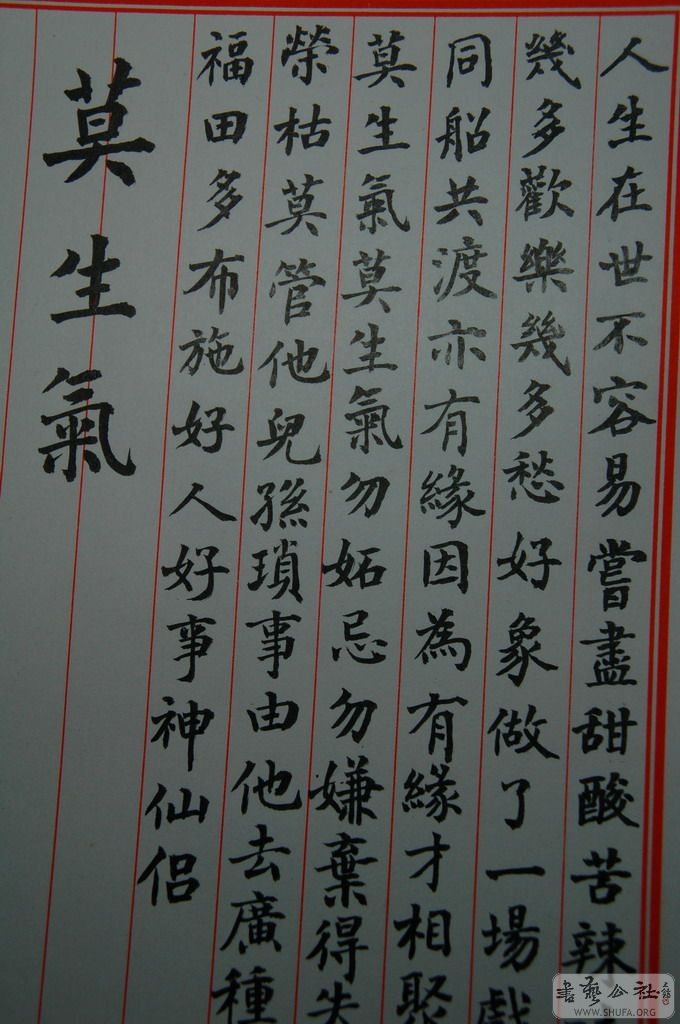 人生在世不容易嘗盡甜酸苦辣
幾多歡樂幾多愁好象做了一場戲
同船共渡亦有緣因為有緣才相聚
莫生氣莫生氣勿妬忌勿嫌棄得失
榮枯莫管他兒孫瑣事由他去廣種
福田多布施好人好事神仙侶
莫生氣
書藝公社
WWW.SHUFA.ORG